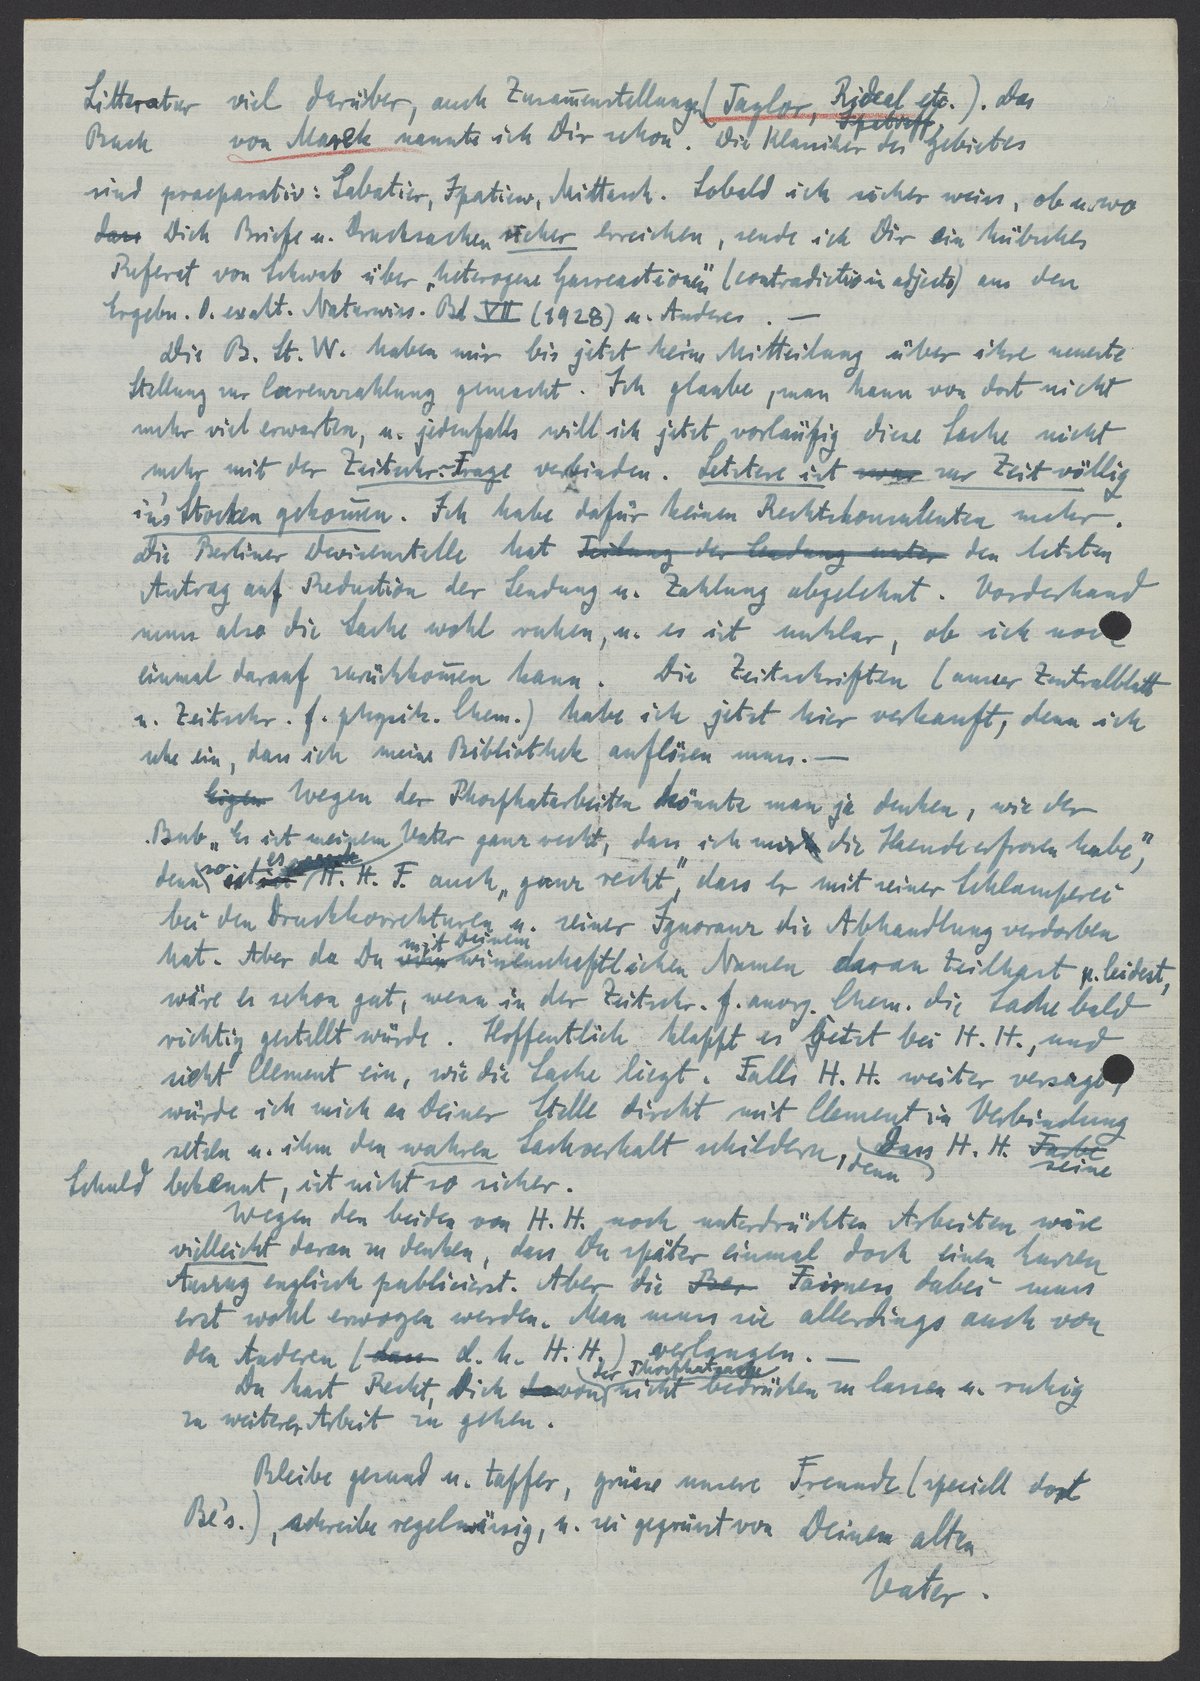 Litteratur viel darüber, auch Zusammenstellungen (Taylor, Rideal etc.). Das
Buch von Marek nannte ich Dir schon. Die Klassiker des Gebietes
sind praeparativ: Sabatier, Ipatiew, Mittasch. Sobald ich sicher weiss, ob u. wo
dass Dich Briefe u. Drucksachen sicher erreichen, sende ich Dir ein hübsches
Referat von Schwab über „heterogene Gasreactionen" (contradictio in adjecto) aus den
Ergebn. d. exakt. Naturwiss. Bd VII (1928) u. Anderes. —
Die B. St. W. haben mir bis jetzt keine Mitteilung über ihre neueste
Stellung zur Carenzzahlung gemacht. Ich glaube, man kann von dort nicht
mehr viel erwarten, u. jedenfalls will ich jetzt vorläufig diese Sache nicht
mehr mit der Zeitschr.-Frage verbinden. Letztere ist zwar zur Zeit völlig
in's Stocken gekom̅en. Ich habe dafür keinen Rechtskonsulenten mehr.
Die Berliner Devisenstelle hat Teilung der Sendung unter den letzten
Antrag auf Reduction der Sendung u. Zahlung abgelehnt. Vorderhand
muss also die Sache wohl ruhen, u. es ist unklar, ob ich noch
einmal darauf zurückkom̅en kann. Die Zeitschriften (ausser Zentralblatt
u. Zeitschr. f. physik. Chem.) habe ich jetzt hier verkauft, denn ich
sehe ein, dass ich meine Bibliothek auflösen muss. —
Eigen Wegen der Phosphatarbeiten könnte man ja denken, wie der
Bub „Es ist meinem Vater ganz recht, dass ich mir die Haende erfroren habe",
denn so ist es H. H. F. auch „ganz recht", dass er mit seiner Schlamperei
bei den Druckkorrekturen u. seiner Ignoranz die Abhandlung verdorben
hat. Aber da Du mit Deinem wissenschaftlichen Namen daran teilhast u. leidest,
wäre es schon gut, wenn in der Zeitschr. f. anorg. Chem. die Sache bald
richtig gestellt würde. Hoffentlich klappt es jetzt bei H. H., und
sieht Clement ein, wie die Sache liegt. Falls H. H. weiter versagt,
würde ich mich an Deiner Stelle direkt mit Clement in Verbindung
setzen u. ihm den wahren Sachverhalt schildern, denn dass H. H. Farbe seine
Schuld bekennt, ist nicht so sicher.
Wegen den beiden von H. H. noch unterdrückten Arbeiten wäre
vielleicht daran zu denken, dass Du später einmal doch einen kurzen
Auszug englisch publicierst. Aber die Ber Fairness dabei muss
erst wohl erwogen werden. Man muss sie allerdings auch von
den Anderen (dass d. h. H. H.) verlangen. —
Du hast Recht, Dich von der Phosphatsache nicht bedrücken zu lassen u. ruhig
zu weiterer Arbeit zu gehen.
Bleibe gesund u. tapfer, grüsse unsere Freunde (speciell dort
Be's.), schreibe regelmässig, u. sei gegrüsst von Deinem alten
Vater.